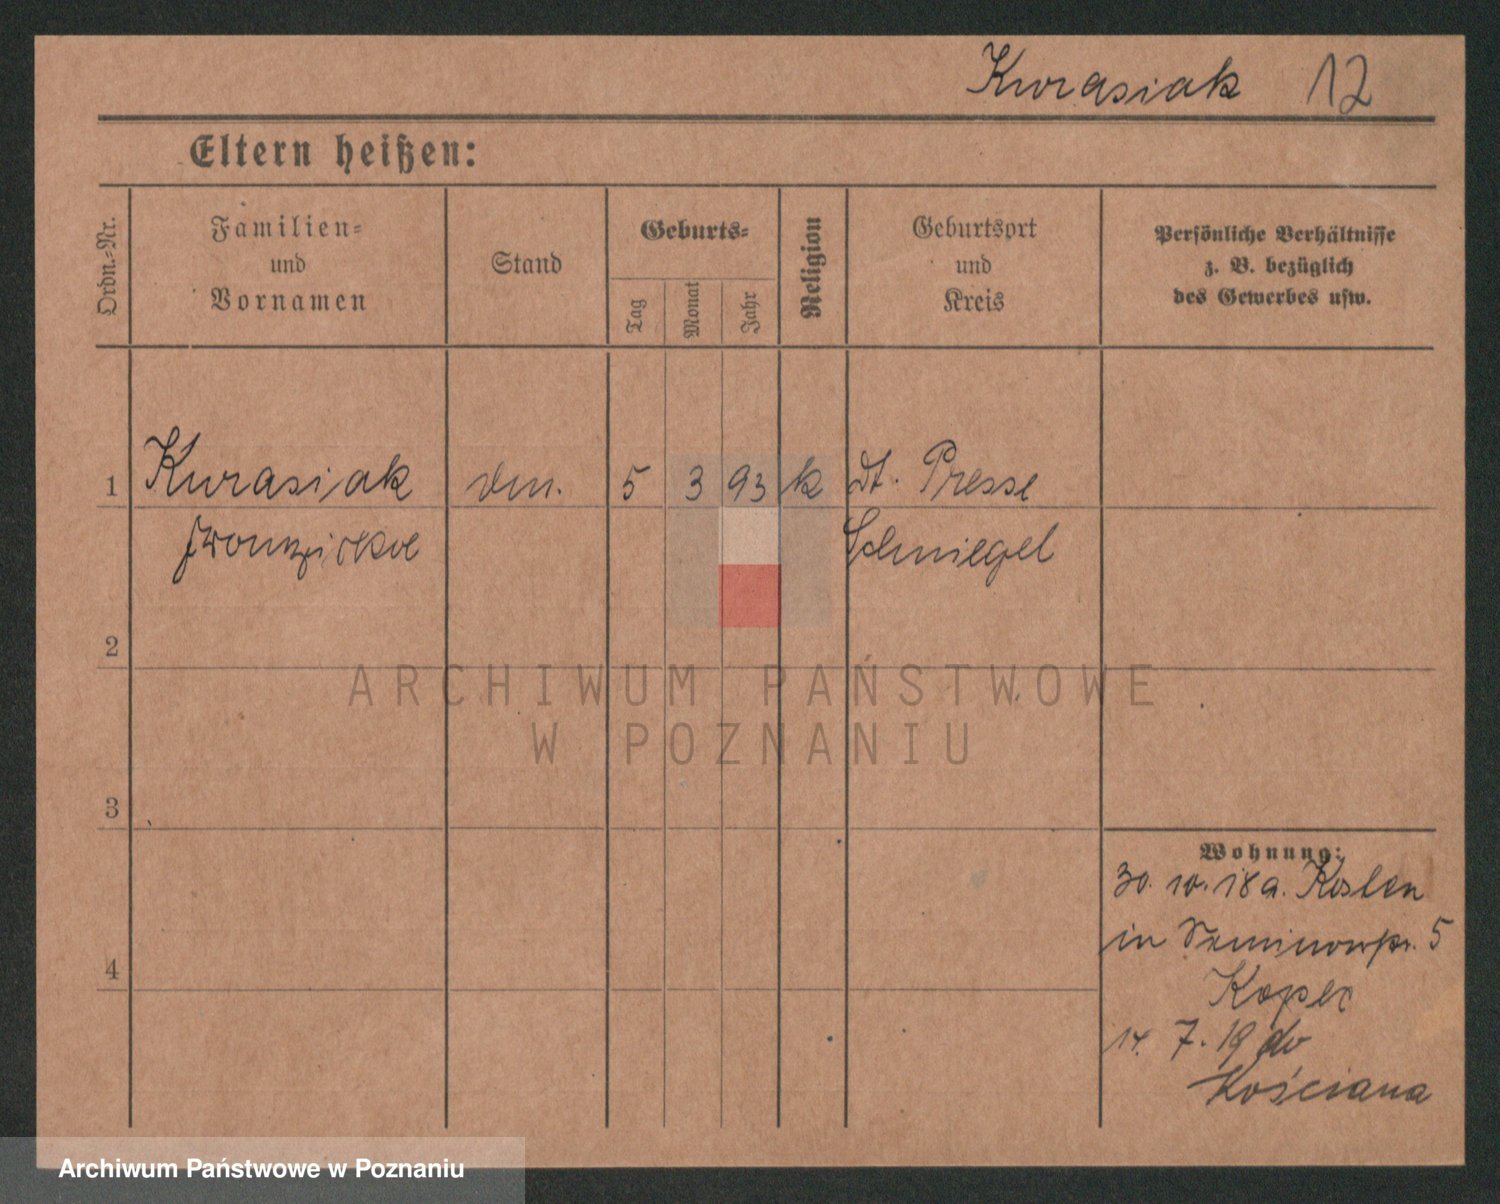 Kurasiak 12
Eltern heißen:
Ordn.-Nr.
Familien-
und
Vornamen
Stand
Geburts-
Tag
Monat
Jahr
Religion
Geburtsort
und
Kreis
Persönliche Verhältnisse
z. B. bezüglich
des Gewerbes usw.
1 Kurasiak 5 3 93 k dt. Presse
Franziska Schmiegel
2
3
4
Wohnung:
30. 10. 18 a. Kosten
in 5
14. 7. 19 do
Kościana
ARCHIWUM PAŃSTWOWE
W POZNANIU
Archiwum Państwowe w Poznaniu